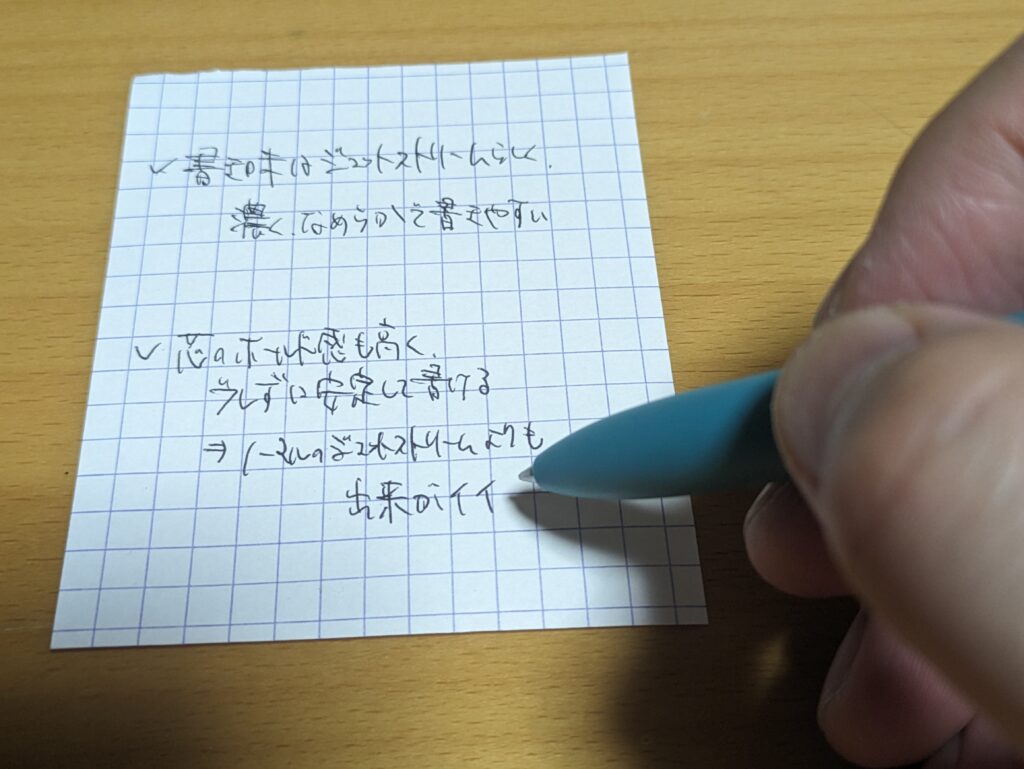 ✓ 書き味はジェットストリームらしく、
濃く、なめらかで書きやすい
✓ 芯のホールド感も高く、
ブレずに安定して書ける
⇒ ノーマルのジェットストリームよりも
出来がイイ